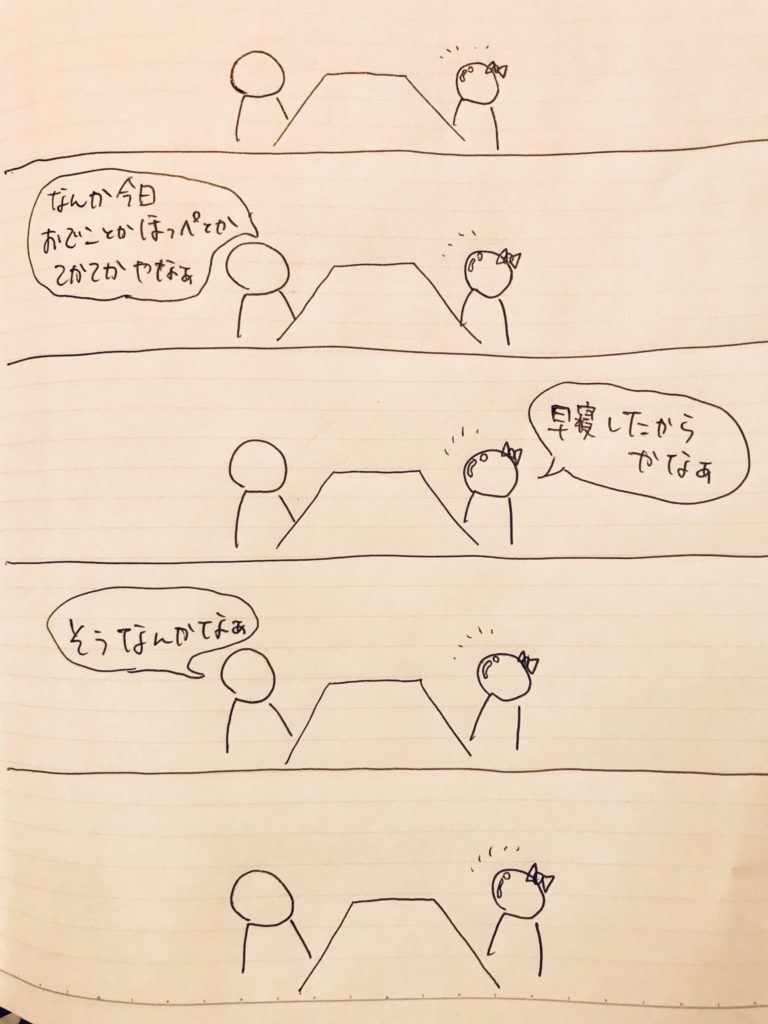 なんか今日
おでことかほっぺとか
てかてかやなぁ
早寝したから
かなぁ
そうなんかなぁ